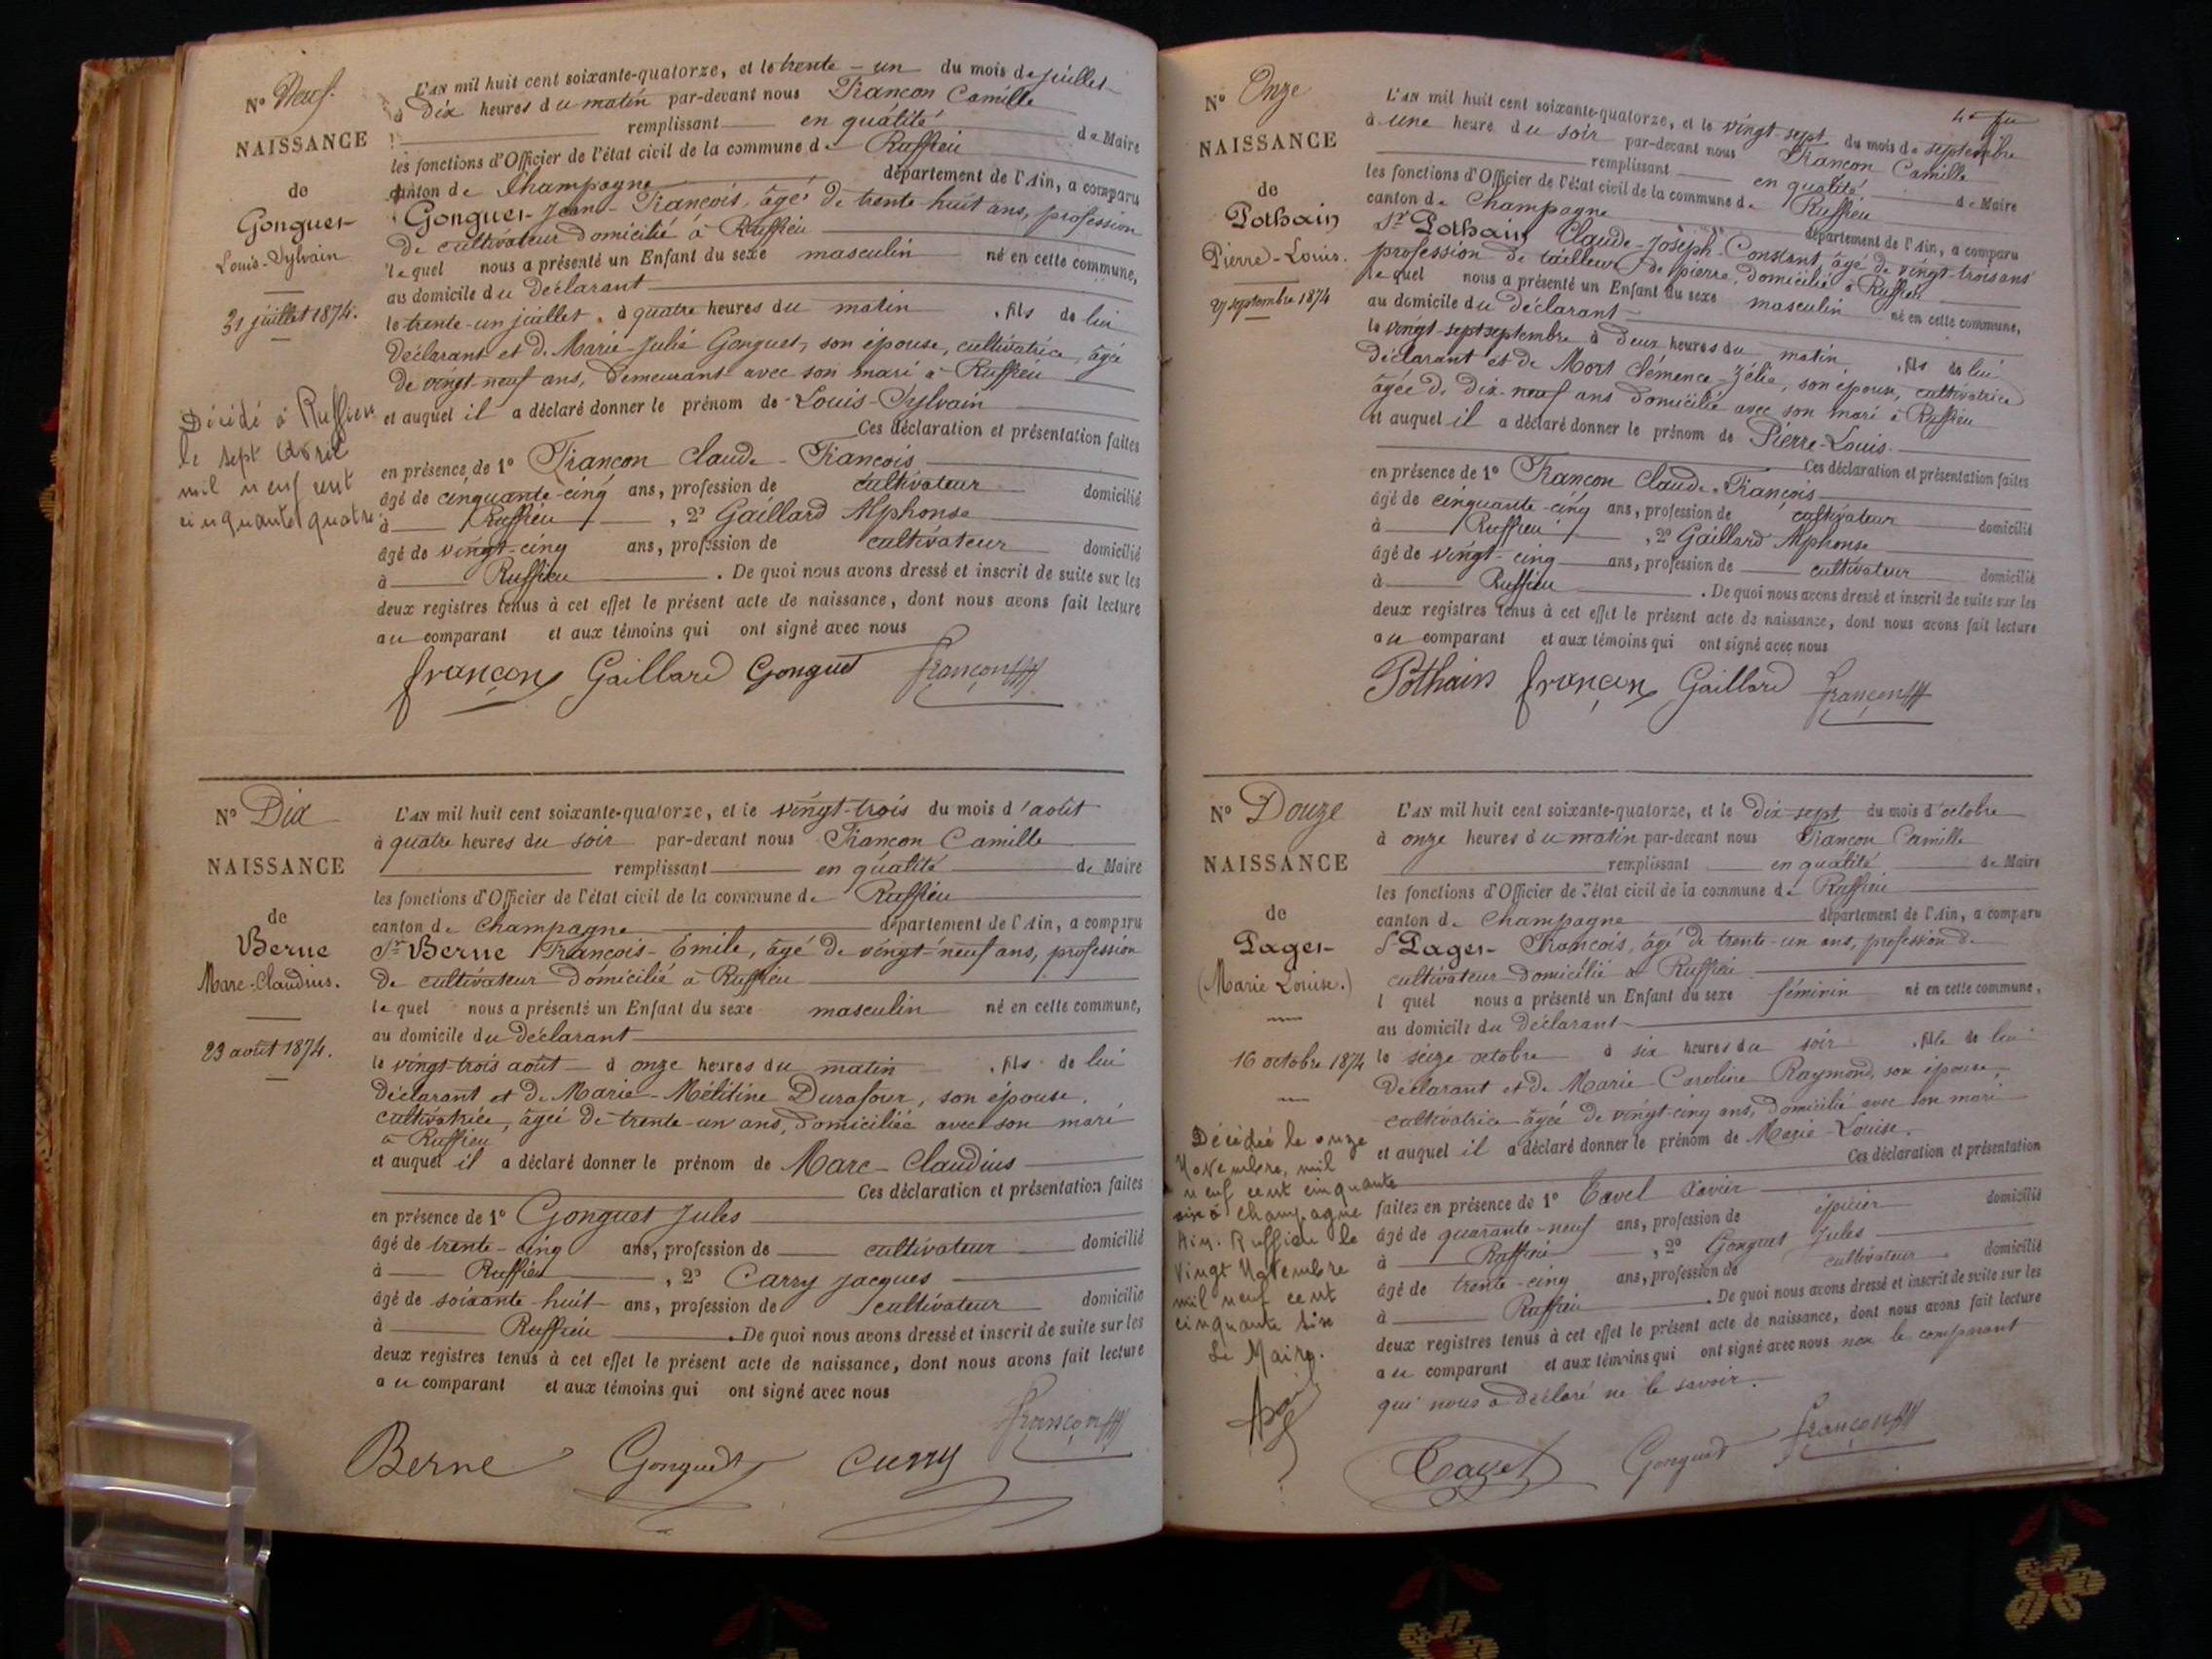 N° Neuf.
NAISSANCE
de
Gonguet
Louis-Sylvain
31 juillet 1874.
Décédé à Ruffieu
le sept avril
mil neuf cent
cinquante quatre.
L'AN mil huit cent soixante-quatorze, et le trente-un du mois de juillet
à dix heures du matin par-devant nous Françon Camille
remplissant en qualité de Maire
les fonctions d'Officier de l'état civil de la commune de Ruffieu
canton de Champagne département de l'Ain, a comparu
Gonguet Jean-François, âgé de trente-huit ans, profession
de cultivateur domicilié à Ruffieu
lequel nous a présenté un Enfant du sexe masculin né en cette commune,
au domicile du déclarant
le trente-un juillet, à quatre heures du matin, fils de lui
déclarant et de Marie-Julie Gonguet, son épouse, cultivatrice, âgée
de vingt-neuf ans, demeurant avec son mari à Ruffieu
et auquel il a déclaré donner le prénom de Louis-Sylvain
Ces déclaration et présentation faites
en présence de 1° Françon Claude-François
âgé de cinquante-cinq ans, profession de cultivateur domicilié
à Ruffieu, 2° Gaillard Alphonse
âgé de vingt-cinq ans, profession de cultivateur domicilié
à Ruffieu. De quoi nous avons dressé et inscrit de suite sur les
deux registres tenus à cet effet le présent acte de naissance, dont nous avons fait lecture
au comparant et aux témoins qui ont signé avec nous
françon Gaillard Gonguet françon
N° Dix
NAISSANCE
de
Berne
Marc-Claudius.
23 août 1874.
L'AN mil huit cent soixante-quatorze, et le vingt-trois du mois d'août
à quatre heures du soir par-devant nous Françon Camille
remplissant en qualité de Maire
les fonctions d'Officier de l'état civil de la commune de Ruffieu
canton de Champagne département de l'Ain, a comparu
Sr Berne François-Emile, âgé de vingt-neuf ans, profession
de cultivateur domicilié à Ruffieu
lequel nous a présenté un Enfant du sexe masculin né en cette commune,
au domicile du déclarant
le vingt-trois août à onze heures du matin, fils de lui
déclarant et de Marie-Mélitine Durafour, son épouse,
cultivatrice, âgée de trente-un ans, domiciliée avec son mari
à Ruffieu
et auquel il a déclaré donner le prénom de Marc-Claudius
Ces déclaration et présentation faites
en présence de 1° Gonguet Jules
âgé de trente-cinq ans, profession de cultivateur domicilié
à Ruffieu, 2° Carry Jacques
âgé de soixante-huit ans, profession de cultivateur domicilié
à Ruffieu. De quoi nous avons dressé et inscrit de suite sur les
deux registres tenus à cet effet le présent acte de naissance, dont nous avons fait lecture
au comparant et aux témoins qui ont signé avec nous
françon
Berne Gonguet
N° Onze
NAISSANCE
de
Pothain
Pierre-Louis.
27 septembre 1874
L'AN mil huit cent soixante-quatorze, et le vingt-sept du mois de septembre
à une heure du soir par-devant nous Françon Camille
remplissant en qualité de Maire
les fonctions d'Officier de l'état civil de la commune de Ruffieu
canton de Champagne département de l'Ain, a comparu
Sr Pothain Claude-Joseph-Constant, âgé de vingt-trois ans
profession de tailleur de pierre, domicilié à Ruffieu
lequel nous a présenté un Enfant du sexe masculin né en cette commune,
au domicile du déclarant
le vingt-sept septembre à deux heures du matin, fils de lui
déclarant et de Mort Clémence-Zélie, son épouse, cultivatrice
âgée de dix-neuf ans domiciliée avec son mari à Ruffieu
et auquel il a déclaré donner le prénom de Pierre-Louis.
Ces déclaration et présentation faites
en présence de 1° Françon Claude-François
âgé de cinquante-cinq ans, profession de cultivateur domicilié
à Ruffieu, 2° Gaillard Alphonse
âgé de vingt-cinq ans, profession de cultivateur domicilié
à Ruffieu. De quoi nous avons dressé et inscrit de suite sur les
deux registres tenus à cet effet le présent acte de naissance, dont nous avons fait lecture
au comparant et aux témoins qui ont signé avec nous
Pothain françon Gaillard françon
N° Douze
NAISSANCE
de
Pager
(Marie Louise.)
16 octobre 1874
Décédée le onze
Novembre, mil
neuf cent cinquante
six à Champagne
Ain. Ruffieu le
vingt Novembre
mil neuf cent
cinquante six
Le Maire.
L'AN mil huit cent soixante-quatorze, et le dix-sept du mois d'octobre
à onze heures du matin par-devant nous Françon Camille
remplissant en qualité de Maire
les fonctions d'Officier de l'état civil de la commune de Ruffieu
canton de Champagne département de l'Ain, a comparu
Sr Pager François, âgé de trente-un ans, profession de
cultivateur domicilié à Ruffieu
l quel nous a présenté un Enfant du sexe féminin né en cette commune,
au domicile du déclarant
le seize octobre à six heures du soir, fille de lui
déclarant et de Marie-Caroline Raymond, son épouse,
cultivatrice âgée de vingt-cinq ans, domicilié avec son mari
et auquel il a déclaré donner le prénom de Marie-Louise.
Ces déclaration et présentation
faites en présence de 1° Tavel Xavier
âgé de quarante-neuf ans, profession de épicier domicilié
à Ruffieu, 2° Gonguet Jules
âgé de trente-cinq ans, profession de cultivateur domicilié
à Ruffieu. De quoi nous avons dressé et inscrit de suite sur les
deux registres tenus à cet effet le présent acte de naissance, dont nous avons fait lecture
au comparant et aux témoins qui ont signé avec nous non le comparant
qui nous a déclaré ne le savoir.
Tavel Gonguet françon